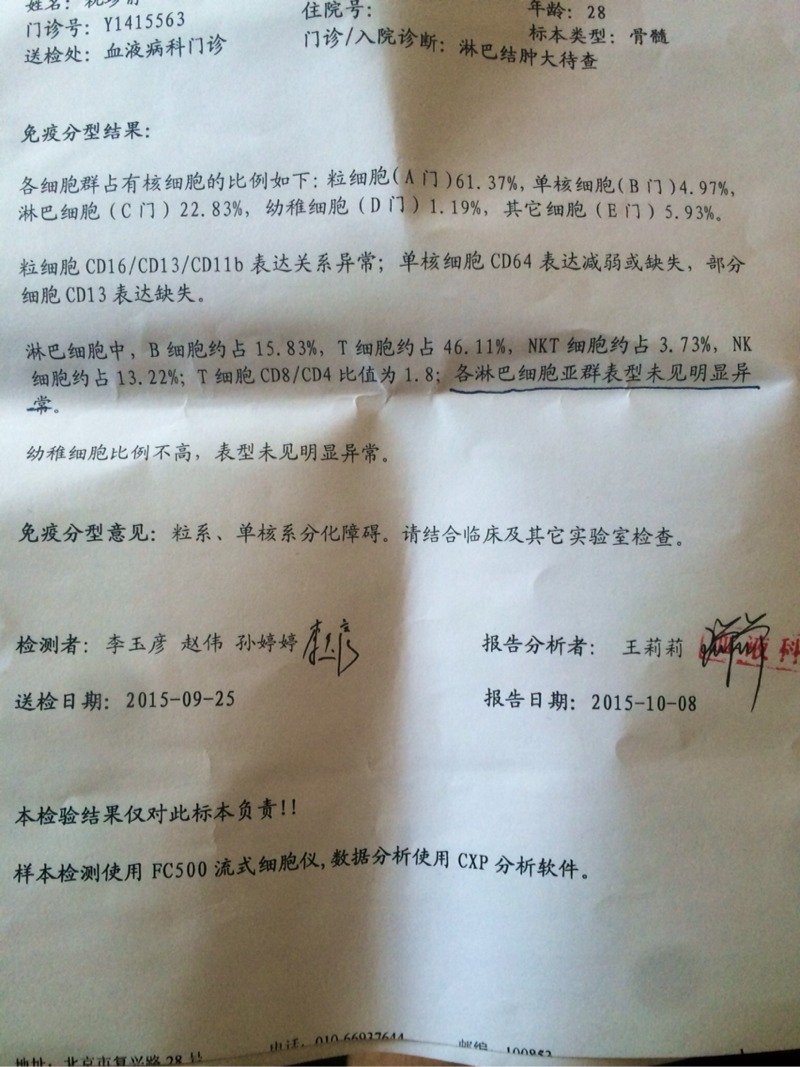 姓名：
住院号：
年龄：28
门诊号：Y1415563
门诊/入院诊断：淋巴结肿大待查
标本类型：骨髓
送检处：血液病科门诊
免疫分型结果：
各细胞群占有核细胞的比例如下：粒细胞(A 门)61.37%, 单核细胞(B 门)4.97%,
淋巴细胞 (C 门) 22.83%, 幼稚细胞 (D 门) 1.19%, 其它细胞 (E 门) 5.93%。
粒细胞 CD16/CD13/CD11b 表达关系异常；单核细胞 CD64 表达减弱或缺失，部分
细胞 CD13 表达缺失。
淋巴细胞中，B 细胞约占 15.83%, T 细胞约占 46.11%, NKT 细胞约占 3.73%, NK
细胞约占 13.22%；T 细胞 CD8/CD4 比值为 1.8；各淋巴细胞亚群表型未见明显异
常。
幼稚细胞比例不高，表型未见明显异常。
免疫分型意见：粒系、单核系分化障碍。请结合临床及其它实验室检查。
检测者：李玉彦 赵伟 孙婷婷
报告分析者：王莉莉
送检日期：2015-09-25
报告日期：2015-10-08
本检验结果仅对此标本负责!!
样本检测使用 FC500 流式细胞仪,数据分析使用 CXP 分析软件。
地址：北京市复兴路 28 号
电话：010-66937644
邮编 100853